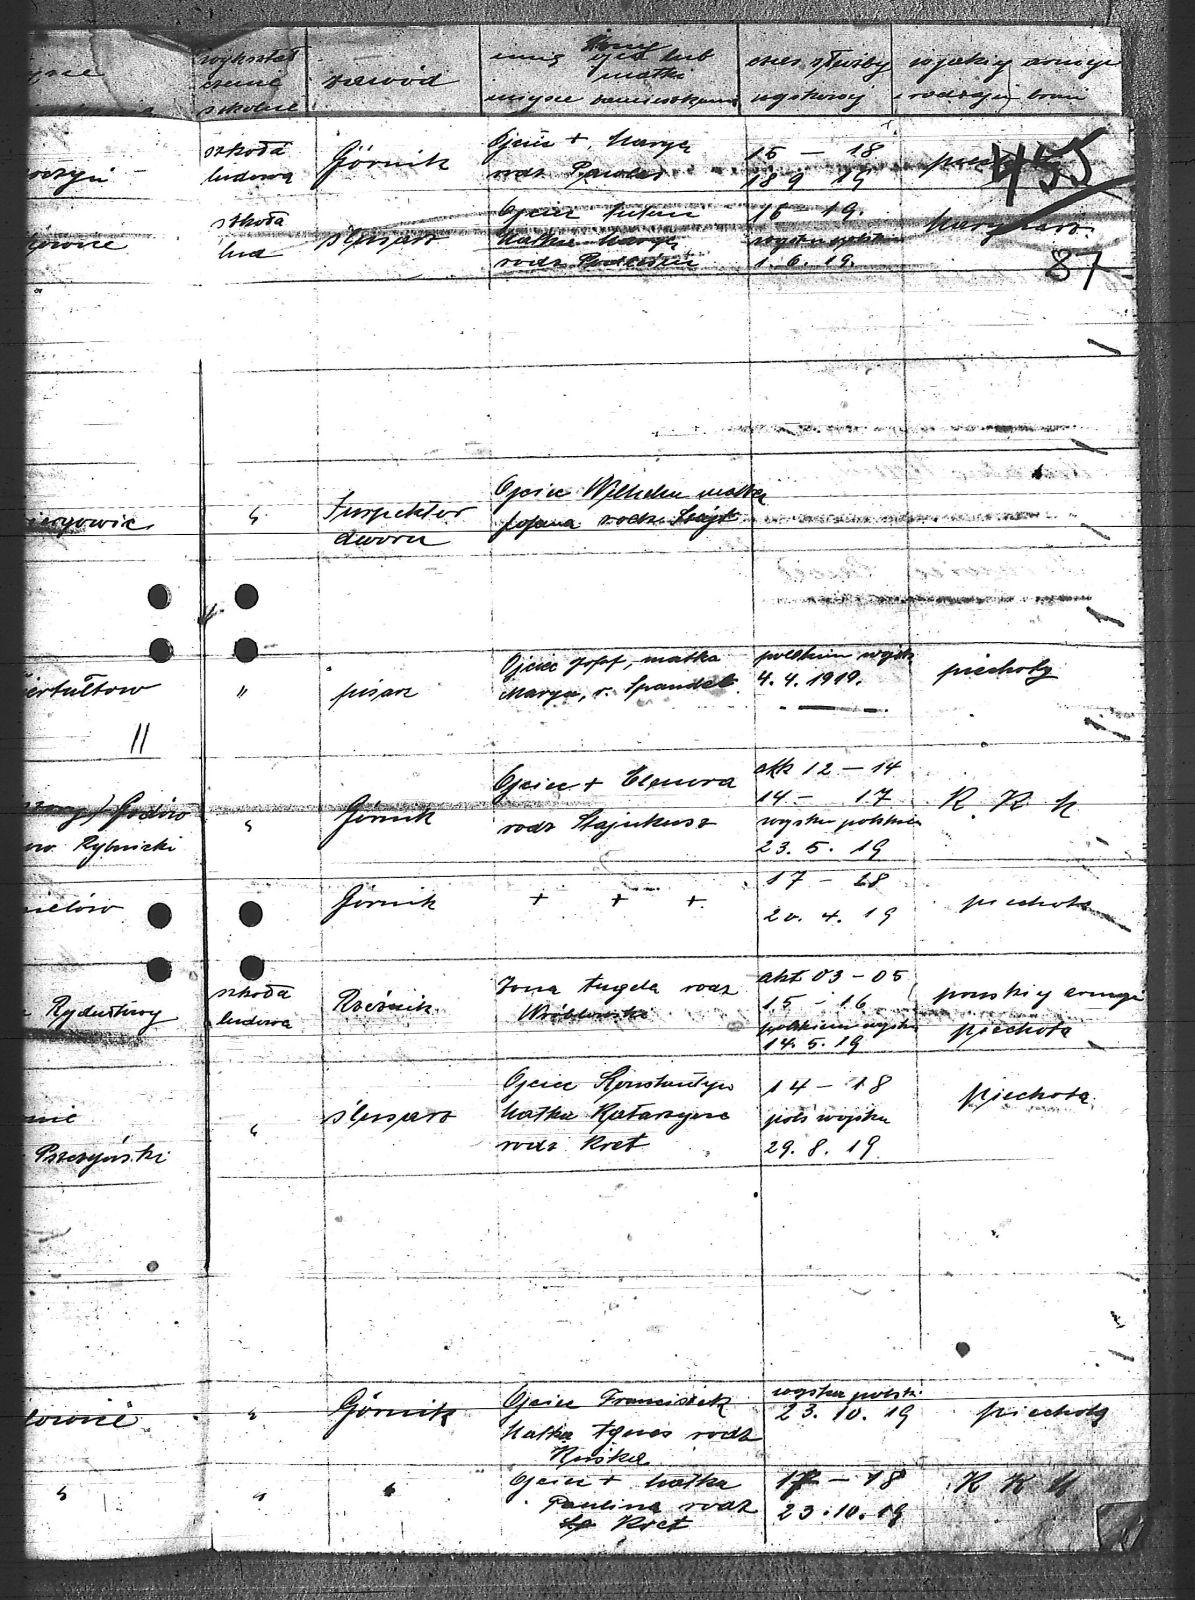 wykształ
cenie
szkolne
zawód
imię ojca lub
żony
matki
miejsce zamieszkania
czas służby
wojskowej
w jakiej armji
i rodzaju broni
szkoła
ludowa
Górnik
Ojciec +, Marya
rodz
15 – 18
18 9 19
455
szkoła
lud
ślusarz
Ojciec
Matka Marya
rodz
16 – 19.
1. 6. 19.
87
"
Inspektor
dworu
Ojciec Wilhelm matka
rodz.
"
pisarz
Ojciec Josef, matka
Marya, r. Spandel
polskim wojsk
4. 4. 1919.
piechoty
11
Rybnicki
"
Górnik
Ojciec + Eleonora
rodz
akt 12 – 14
14 – 17
wojsku polskim
23. 5. 19
R K U
Górnik
+ + +
17 – 18
20. 4. 19
piechota
Rydułtowy
szkoła
ludowa
Rzeźnik
Żona Angela rodz
Wróblowska
akt 03 – 05
15 – 16
polskim wojsku
14. 5. 19
pruskiej armji
piechota
Pszczyński
"
ślusarz
Ojciec Konstantyn
Matka Katarzyna
rodz Kret
14 – 18
pols wojsku
29. 8. 19
piechota
"
Górnik
Ojciec Franciszek
Matka Agnes rodz
wojsku polski
23. 10. 19
piechoty
" " "
Ojciec + Matka
Paulina rodz
Kret
17 – 18
23. 10. 19
R K U